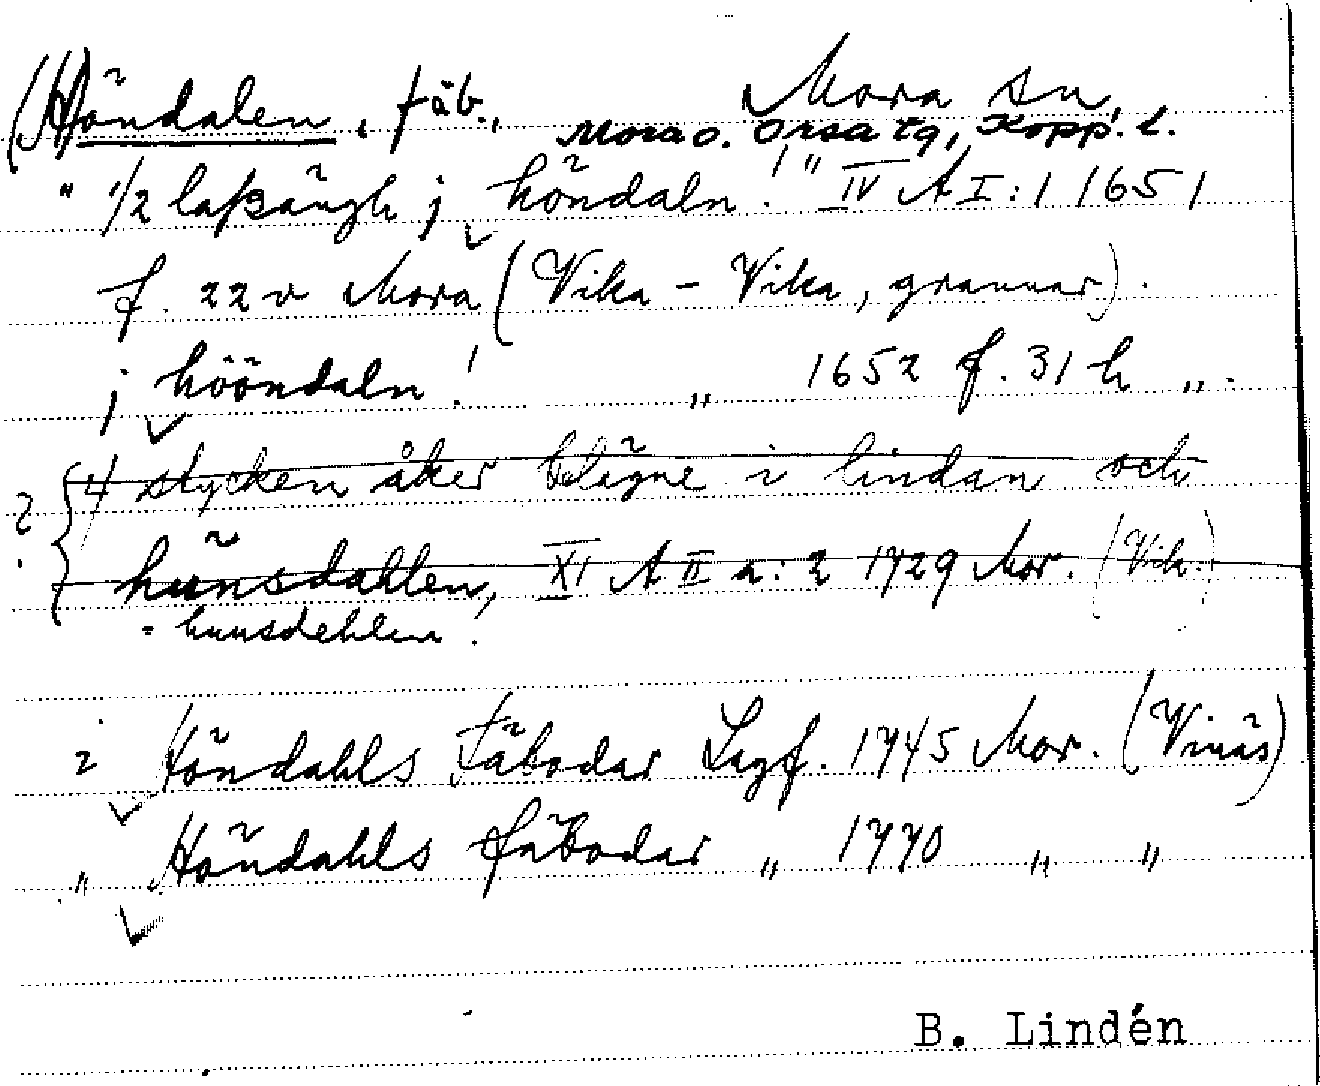 (H)öndalen, fäb., Mora sn,
Mora o. Orsa tg, Kopp. l.
" 1/2 laßängh j höndaln!" IV A I:1 1651
f. 22 v Mora (Vika - Vika, grannar).
j hööndaln! " 1652 f. 31 h ".
? { 4 stycken åker belägne i lindan och
hünsdahlen, XI A II a: 2 1729 Mor. (Vik.)
= hunsdehlen!
i Höndahls Fäbodar Lagf. 1745 Mor. (Vinäs)
" Höndahls fäbodar " 1770 " "
B. Lindén